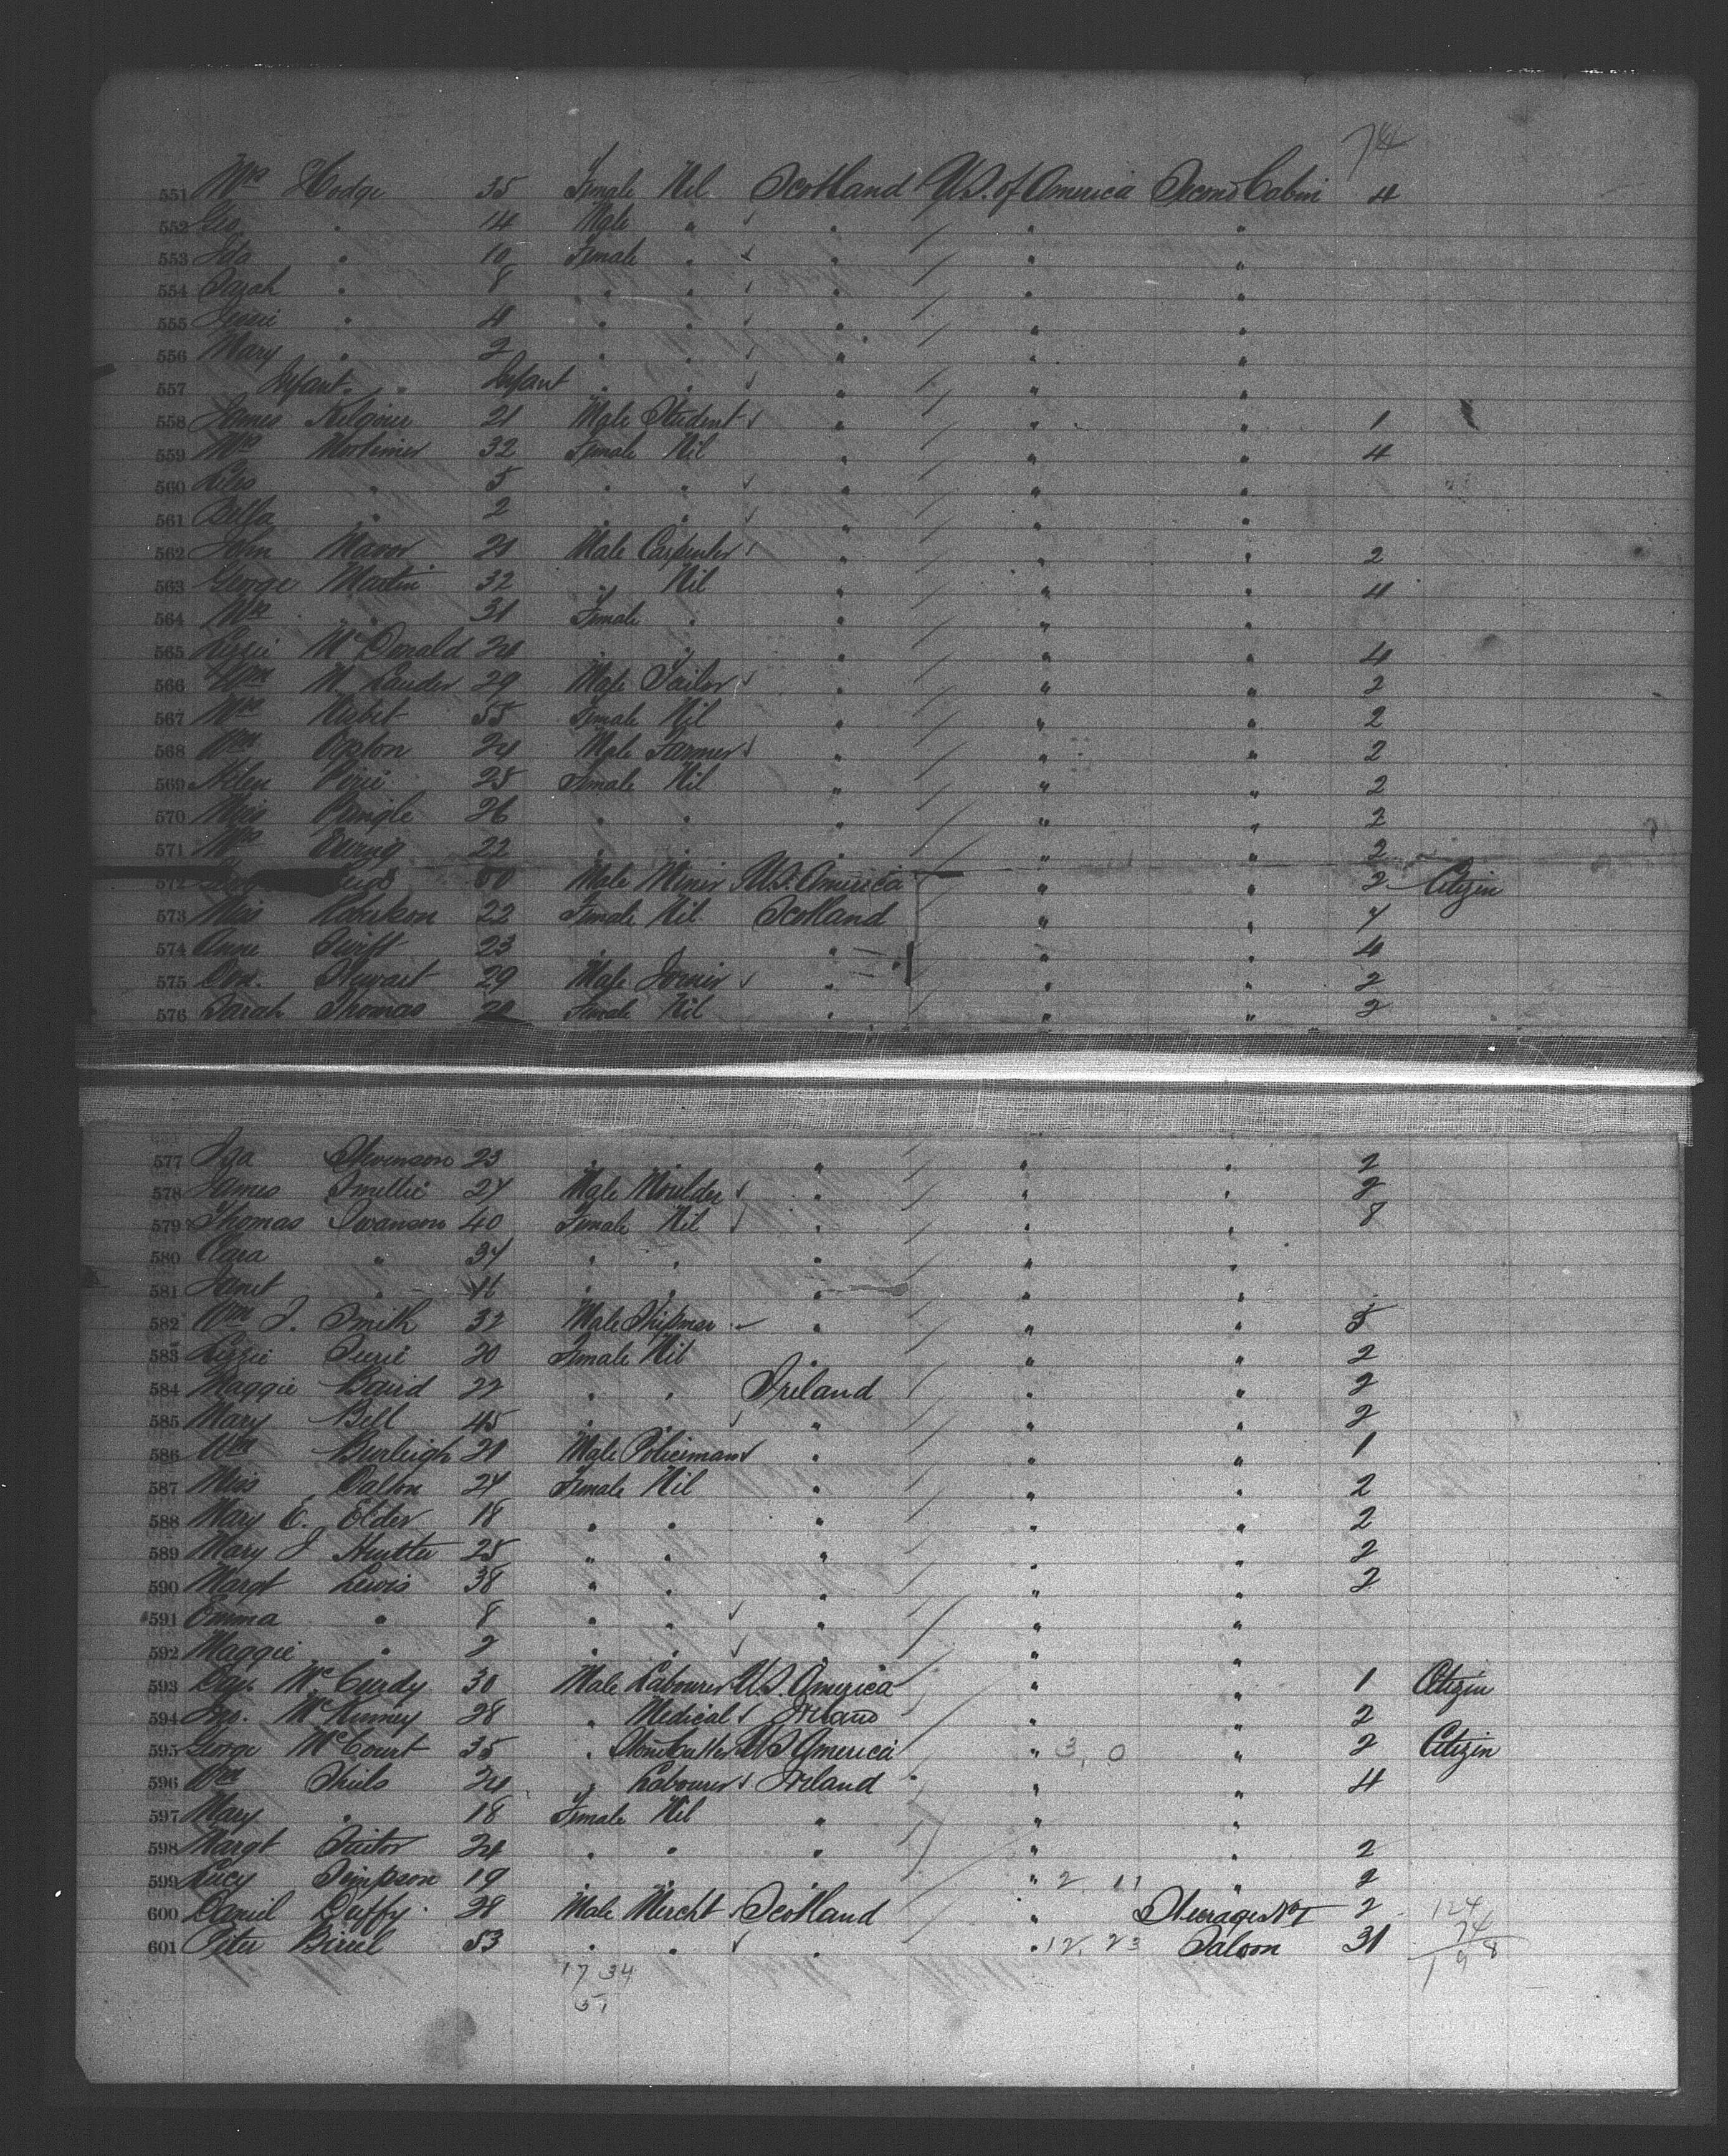 74
551 Mrs Hodge 35 Female Nil Scotland U.S. of America Second Cabin 4
552 Geo. " 14 Male " " " "
553 Ida " 10 Female " " " "
554 Sarah " 8 " " " " "
555 Jessie " 4 " " " " "
556 Mary " 2 " " " " "
557 Infant " Infant " " " " "
558 James Kilgour 21 Male Student " " " 1
559 Mrs Mortimer 32 Female Nil " " " 4
560 " 5 " " " " "
561 Bella " 2 " " " " "
562 John Mavor 21 Male Carpenter " " " 2
563 George Martin 32 " Nil " " " 4
564 Mrs " 31 Female " " " "
565 Lizzie McDonald 24 " " " " " 4
566 Wm M. Lauder 29 Male Tailor " " " 2
567 Mrs Nisbet 55 Female Nil " " " 2
568 Wm 24 Male Farmer " " " 2
569 Helen Pirie 25 Female Nil " " " 2
570 Miss Pringle 26 " " " " " 2
571 Mrs 22 " " " " " 2
572 60 Male Miner U.S. America " " 2 Citizen
573 Miss Robertson 22 Female Nil Scotland " " 4
574 Annie Swift 23 " " " " 4
575 Stewart 29 Male Joiner " " " 2
576 Sarah Thomas 20 Female Nil " " " 2
577 Stevenson 23 " " " " 2
578 James Smellie 27 Male Moulder " " " 2
579 Thomas Swanson 40 Female Nil " " " 8
580 Clara " 34 " " " " "
581 Janet " 16 " " " " "
582 Wm J. Smith 32 Male " " " 5
583 Lizzie 20 Female Nil " " " 2
584 Maggie Baird 22 " " Ireland " " 2
585 Mary Bell 45 " " " " 2
586 Wm Burleigh 21 Male Policeman " " " 1
587 Miss Dalton 24 Female Nil " " " 2
588 Mary E. Elder 18 " " " " " 2
589 Mary J Hunter 25 " " " " " 2
590 Margt Lewis 38 " " " " " 2
591 Emma " 8 " " " " "
592 Maggie " 2 " " " "
593 McCurdy 30 Male Labourer U.S. America " " 1 Citizen
594 Jno. McKinney 28 " Medical Ireland " " 2
595 George McCourt 35 " Stonecutter U.S. America " 3, 0 " 2 Citizen
596 Wm Shiels 24 " Labourer Ireland " " 4
597 Mary " 18 Female Nil " " "
598 Margt 24 " " " " " 2
599 Lucy Simpson 19 " " " 2, 11 " 2
600 Daniel Duffy 28 Male Mercht Scotland " Steerage No 1 2 124
601 Peter Birrel 53 " " " " 12, 23 Saloon 31 74
198
17 34
51